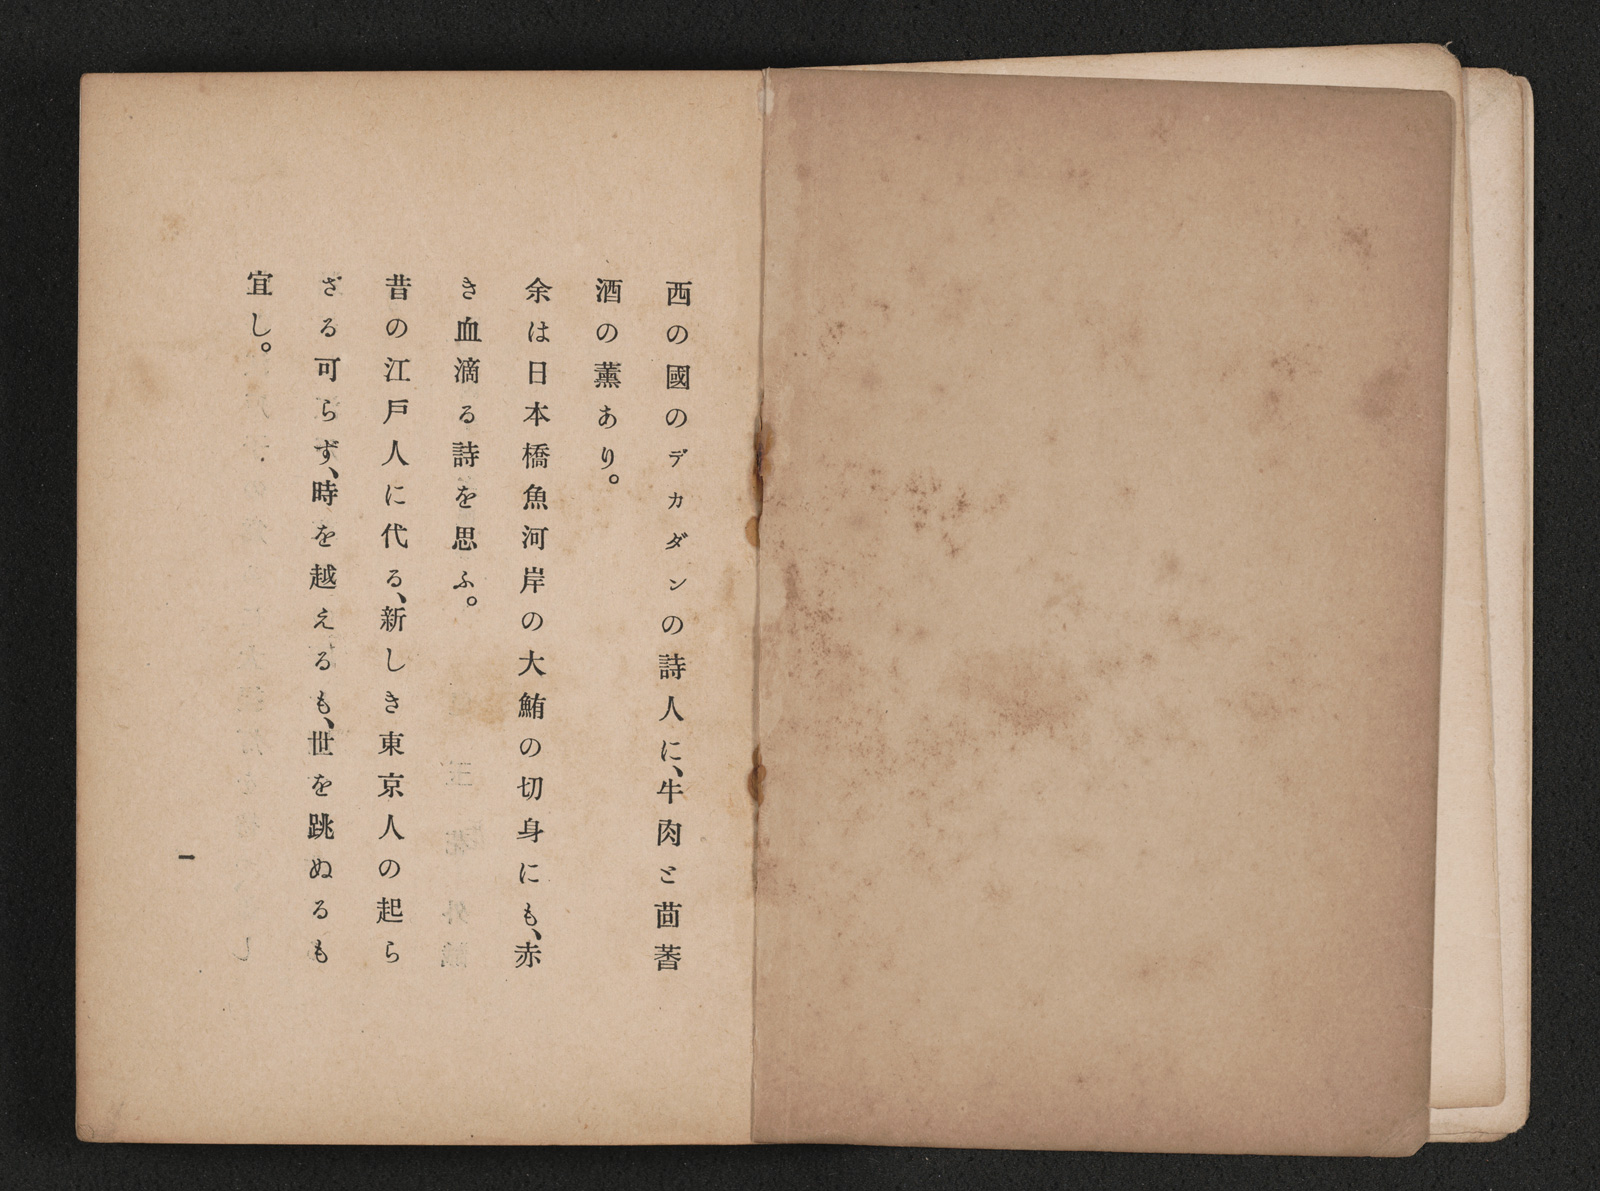 西の國のデカダンの詩人に、牛肉と茴香
酒の薫あり。
余は日本橋魚河岸の大鮪の切身にも、赤
き血滴る詩を思ふ。
昔の江戸人に代る、新しき東京人の起ら
ざる可らず、時を越えるも、世を跳ぬるも
宜し。
一